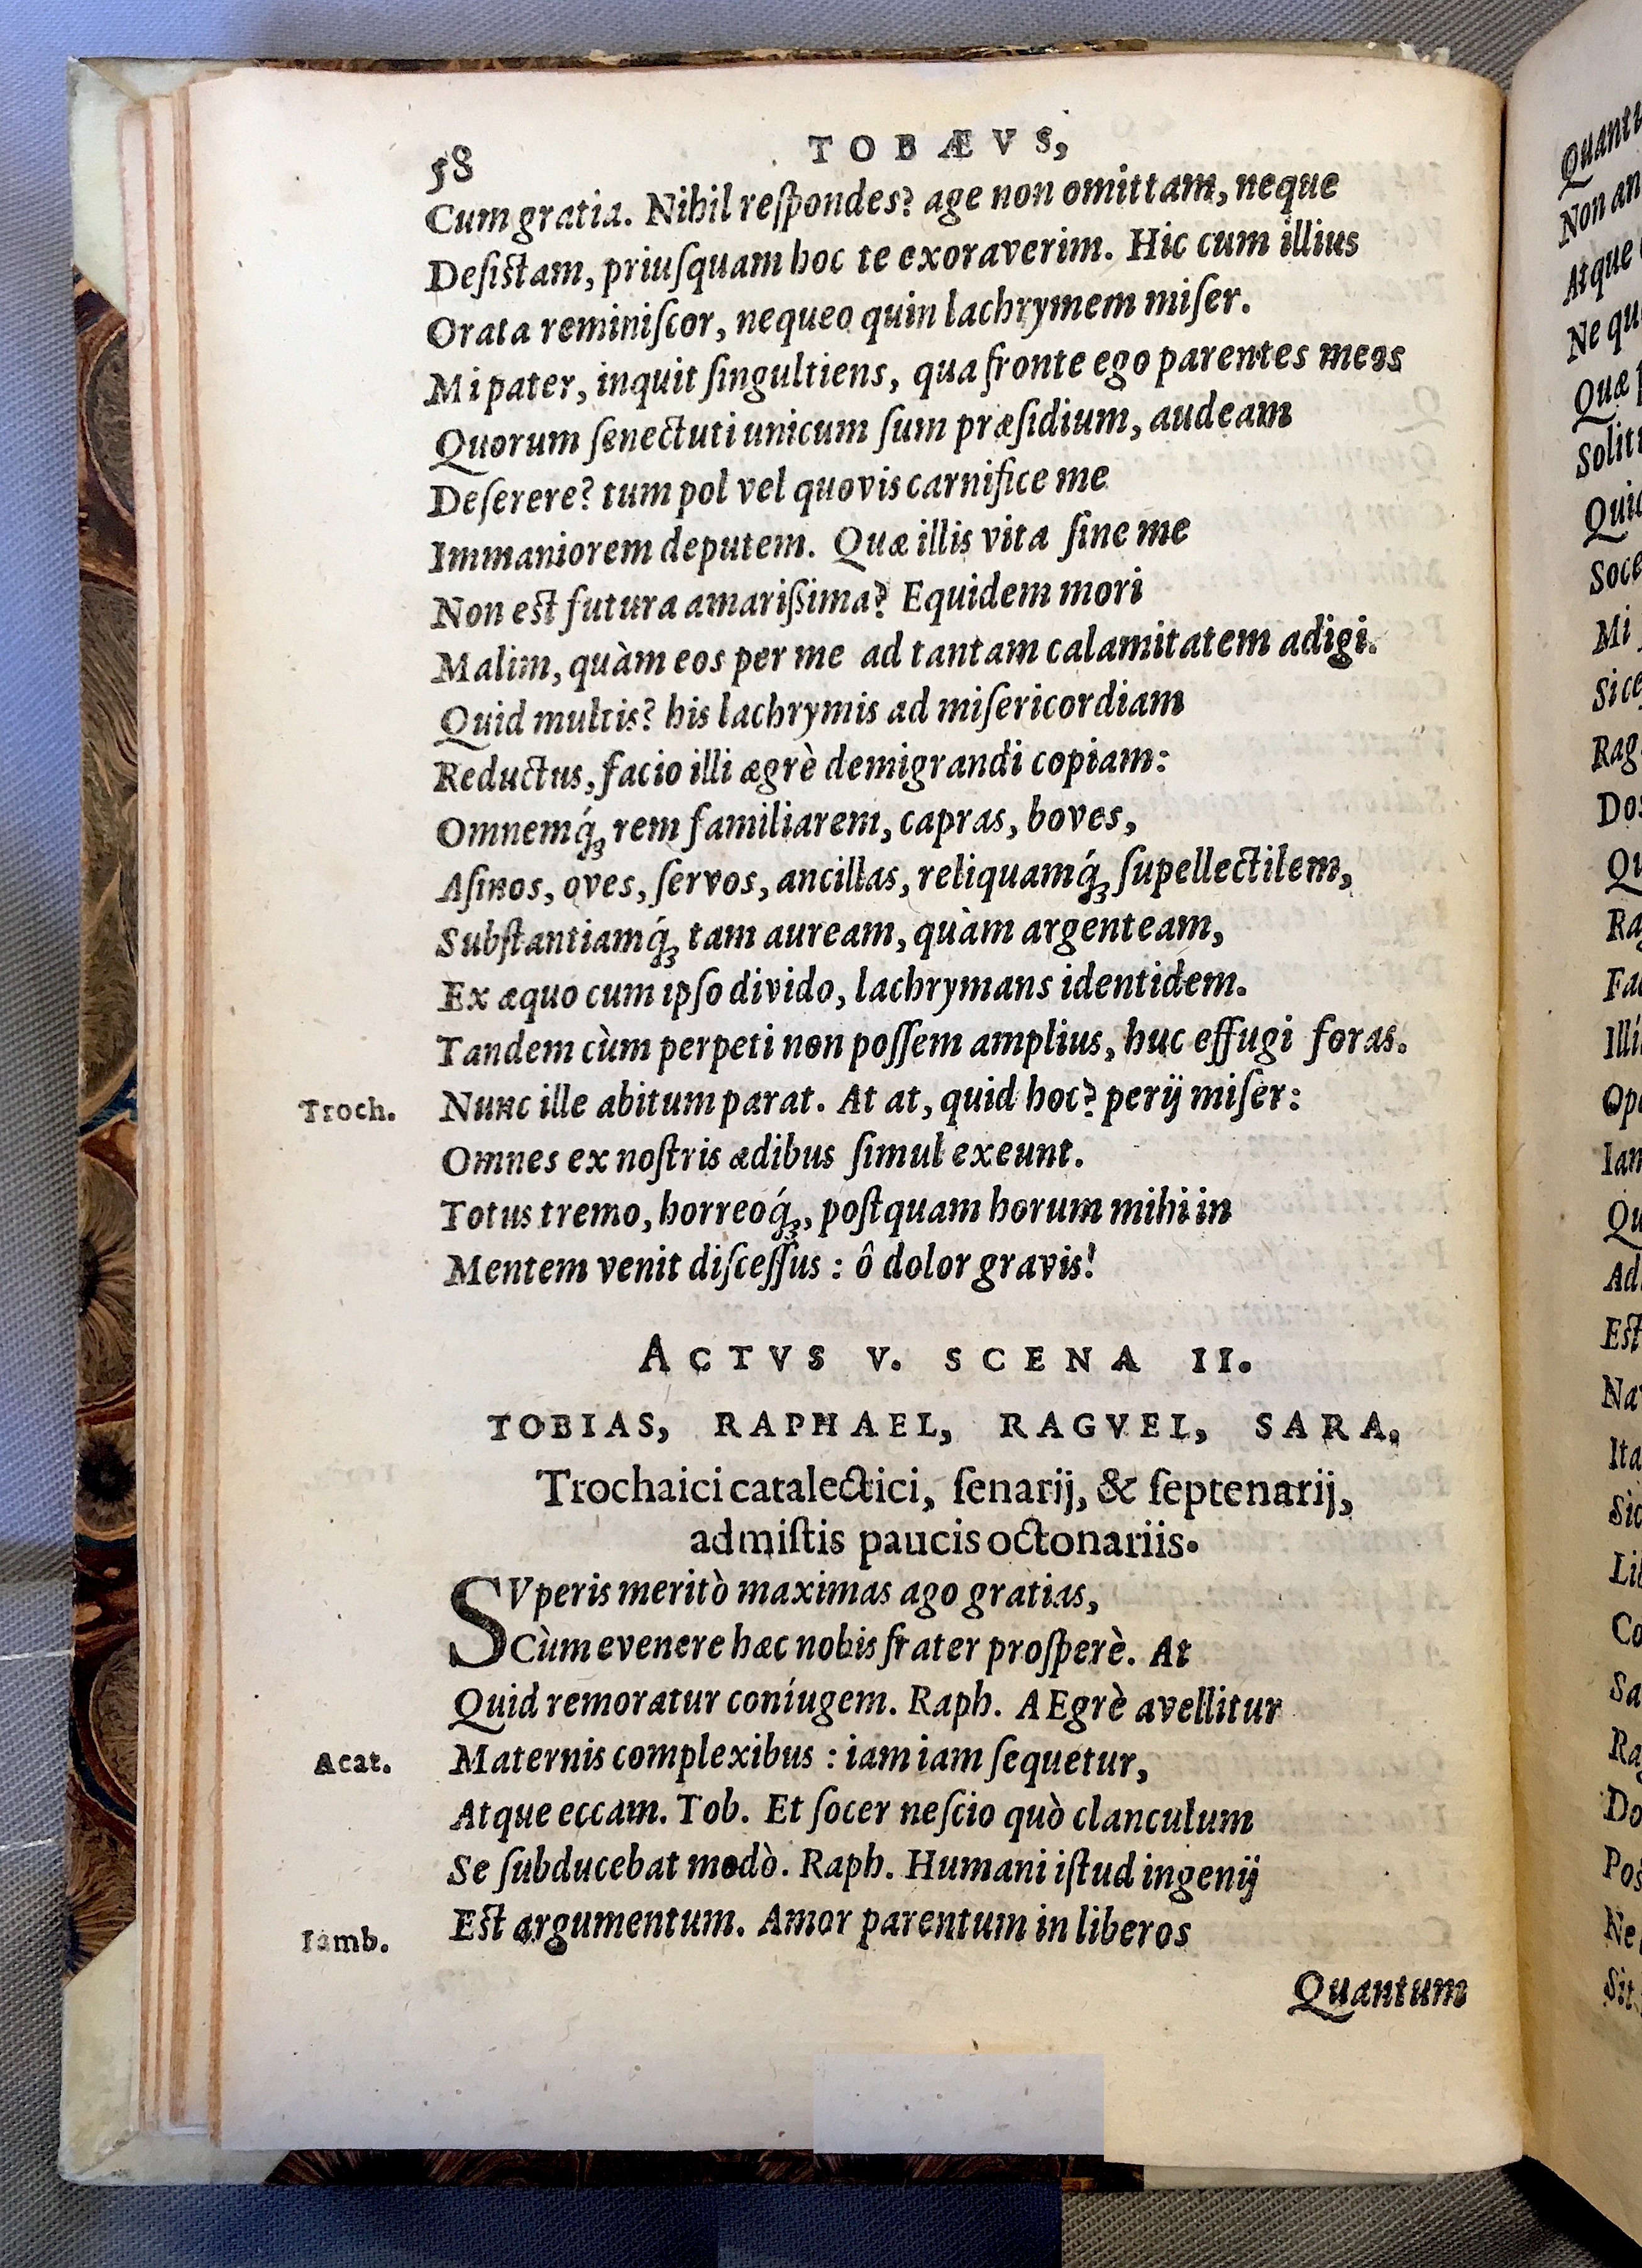 58
TOBÆVS,
Cum gratia. Nihil reſpondes? age non omittam, neque
Deſiſtam, priuſquam hoc te exoraverim. Hic cum illius
Orata reminiſcor, nequeo quin lachrymem miſer.
Mi pater, inquit ſingultiens, qua fronte ego parentes meos
Quorum ſenectuti unicum ſum præſidium, audeam
Deſerere? tum pol vel quovis carnifice me
Immaniorem deputem. Quæ illis vita ſine me
Non eſt futura amarißima? Equidem mori
Malim, quàm eos per me ad tantam calamitatem adigi.
Quid multis? his lachrymis ad miſericordiam
Reductus, facio illi ægrè demigrandi copiam:
Omnemq́ꝫ rem familiarem, capras, boves,
Aſinos, oves, ſervos, ancillas, reliquamq́ꝫ ſupellectilem,
Subſtantiamq́ꝫ tam auream, quàm argenteam,
Ex æquo cum ipſo divido, lachrymans identidem.
Tandem cùm perpeti non poſſem amplius, huc effugi foras.
Troch. Nunc ille abitum parat. At at, quid hoc? perij miſer:
Omnes ex noſtris ædibus ſimul exeunt.
Totus tremo, horreoq́ꝫ, poſtquam horum mihi in
Mentem venit diſceſſus : ô dolor gravis!
ACTVS V. SCENA II.
TOBIAS, RAPHAEL, RAGVEL, SARA.
Trochaici catalectici, ſenarij, & ſeptenarij,
admiſtis paucis octonariis.
SVperis meritò maximas ago gratias,
Cùm evenere hæc nobis frater proſperè. At
Quid remoratur coniugem. Raph. AEgrè avellitur
Acat. Maternis complexibus : iam iam ſequetur,
Atque eccam. Tob. Et ſocer neſcio quò clanculum
Se ſubducebat modò. Raph. Humani iſtud ingenij
Iamb. Eſt argumentum. Amor parentum in liberos
Quantum
Non an
Atque
Ne qu
Quæ
Solit
Quid
Soce
Mi
Sic
Rag
Dos
Qu
Ra
Fac
Illi
Iam
Qu
Ad
Eſt
Na
Ita
Sic
Co
Sa
Ra
Do
Poſ
Ne
Sit